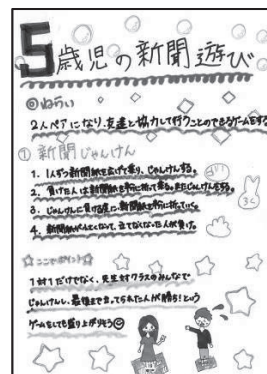 5歳児の新聞遊び
◎ねらい
2人ペアになり、友達と協力して行うことのできるゲームをする
① 新聞じゃんけん
1. 1人ずつ新聞紙を広げて乗り、じゃんけんする。
2. 負けた人は新聞紙を半分に折って乗る。またじゃんけんをする。
3. じゃんけんに負ける度に新聞紙を半分に折っていく。
4. 新聞紙が小さくなって、立てなくなった人が負け。
☆ここがポイント☆
1対1だけでなく、先生対クラスのみんなで
じゃんけんし、最後まで立ってられた人が勝ち!という
ゲームをしても盛り上がりそう